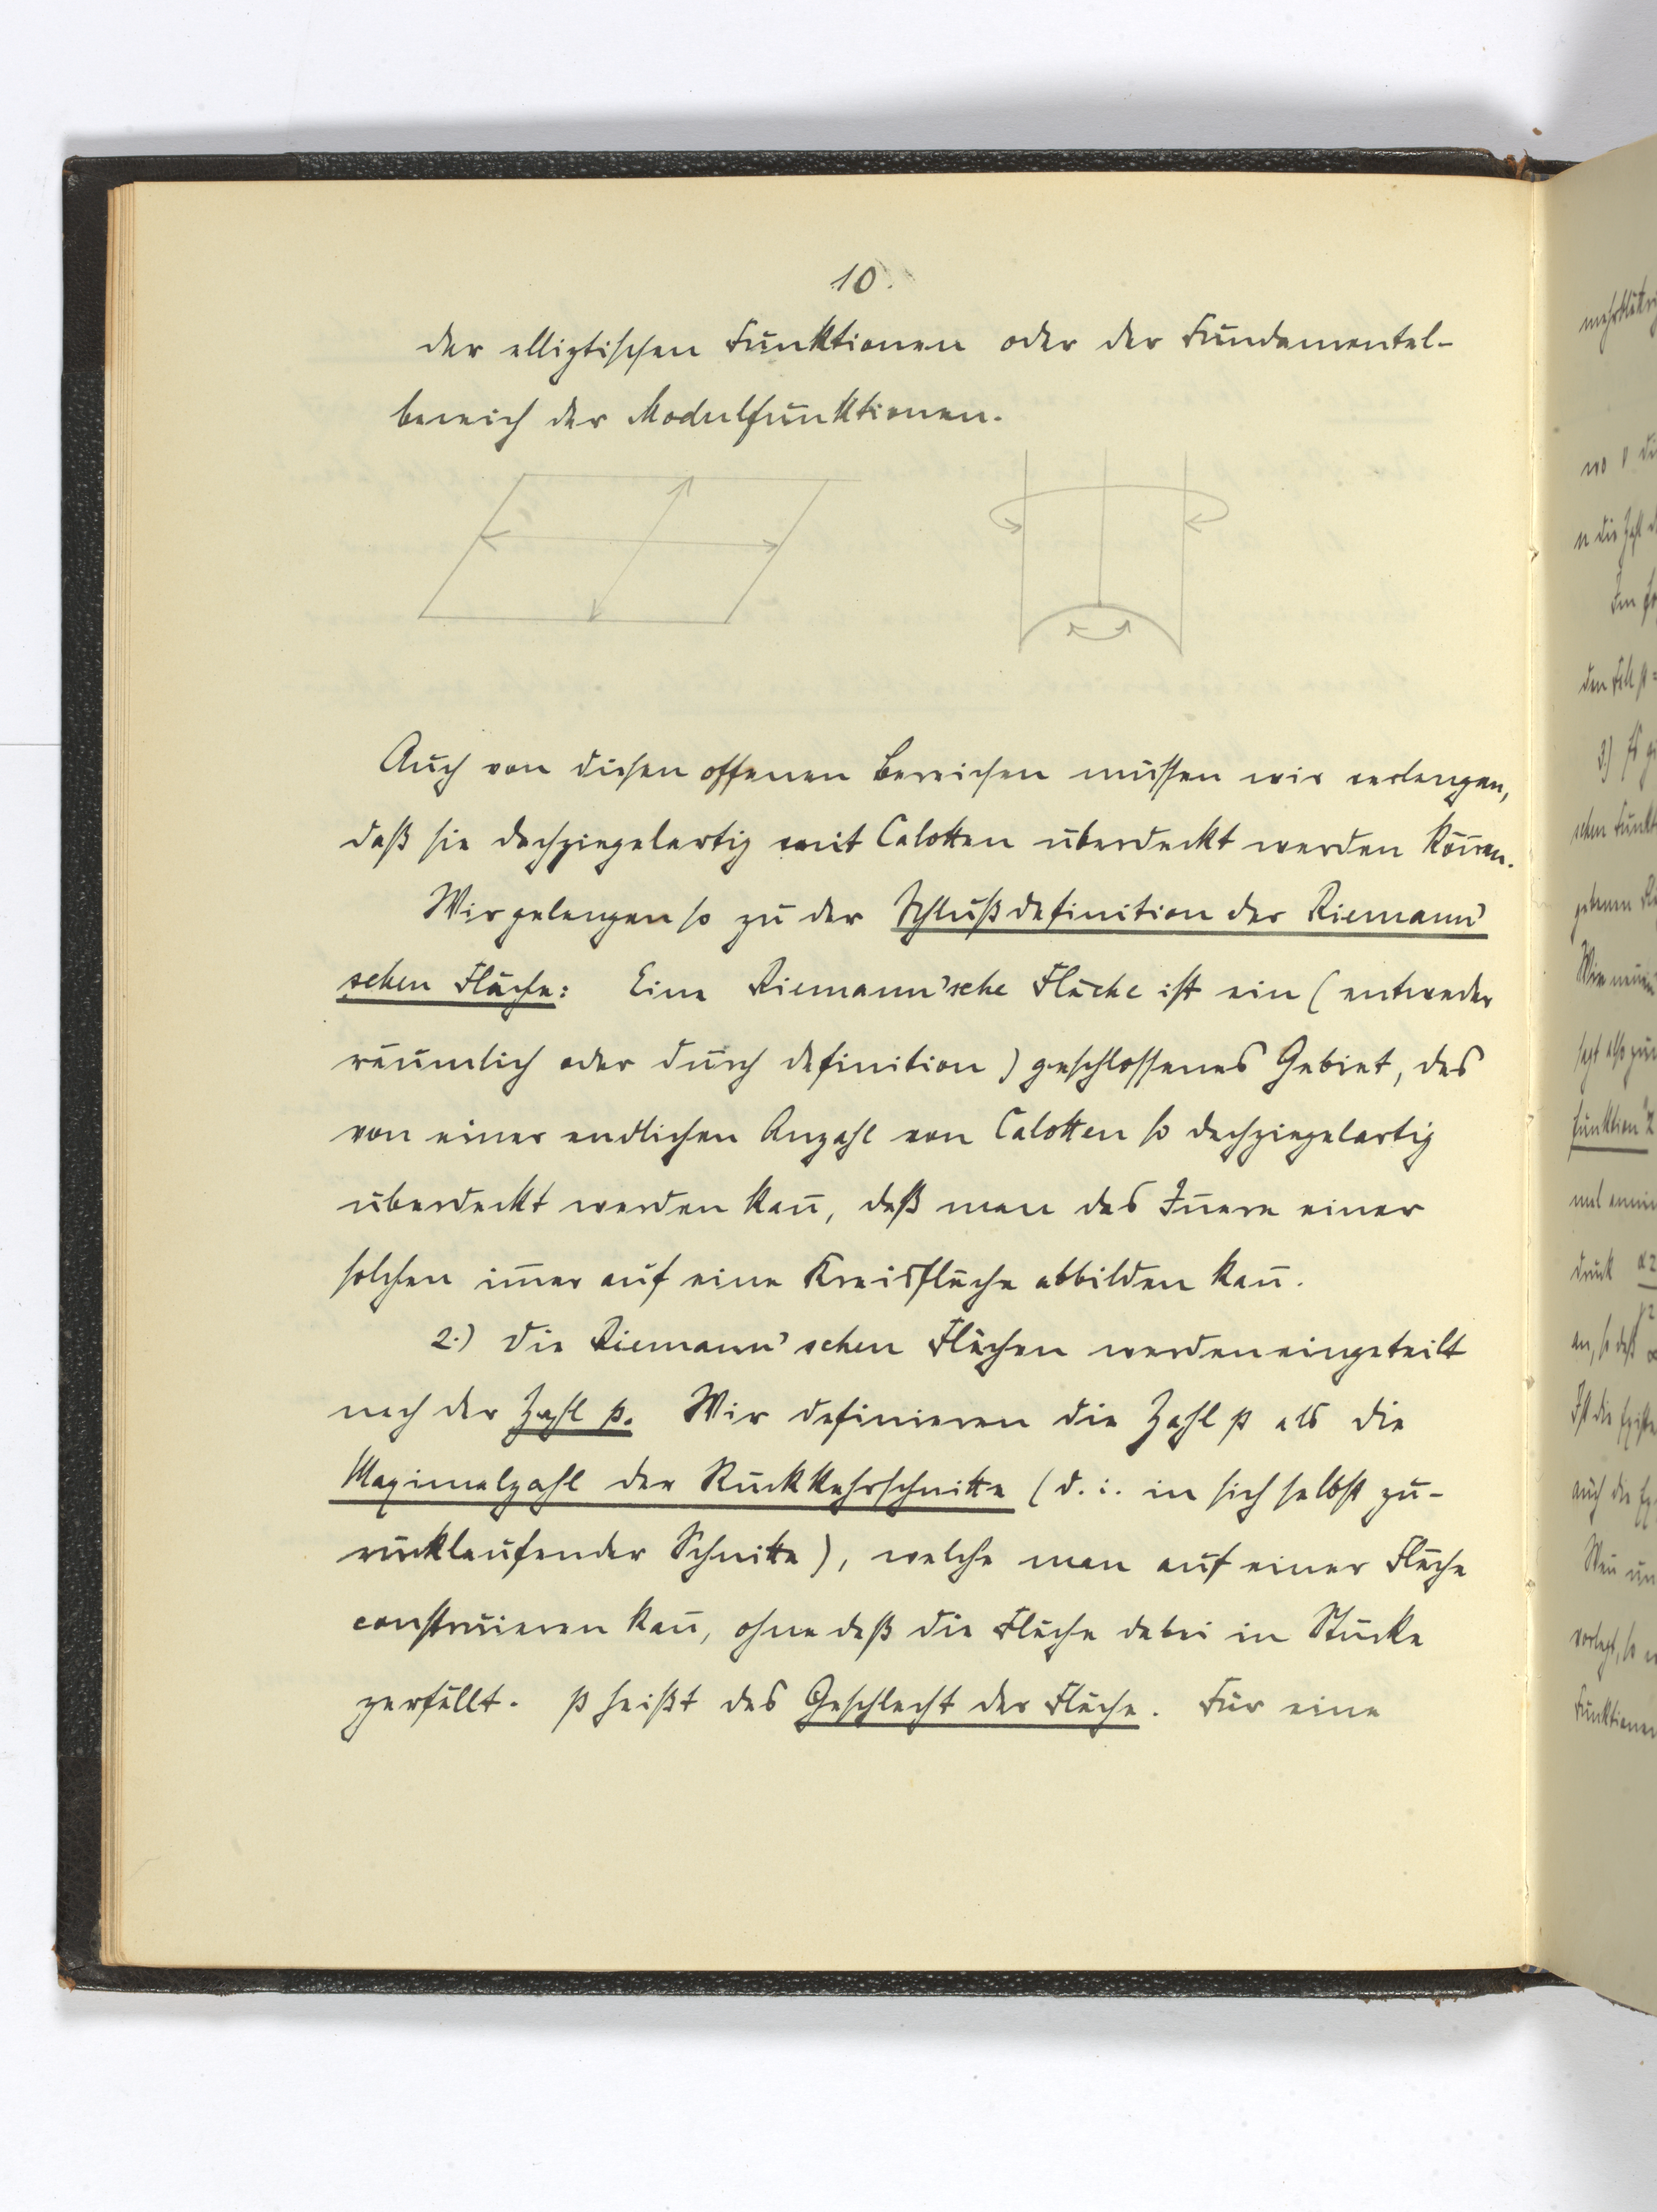 10.
der elliptischen Funktionen oder der Fundamental-
bereich der Modulfunktionen.
Auch von diesen offenen Bereichen müssen wir verlangen,
daß sie dachziegelartig mit Calotten überdeckt werden kön̄en.
Wir gelangen so zu der Schlußdefinition der Riemann'
schen Fläche: Eine Riemann'sche Fläche ist ein (entweder
räumlich oder durch Definition) geschlossenes Gebiet, das
von einer endlichen Anzahl von Calotten so dachziegelartig
überdeckt werden kan̄, daß man das In̄ere einer
solchen im̄er auf eine Kreisfläche abbilden kan̄.
2.) Die Riemann'schen Flächen werden eingeteilt
nach der Zahl p. Wir definieren die Zahl p als die
Maximalzahl der Rückkehrschnitte (d. i. in sich selbst zu-
rücklaufender Schnitte), welche man auf einer Fläche
construieren kan̄, ohne daß die Fläche dabei in Stücke
zerfällt. p heißt das Geschlecht der Fläche. Für eine